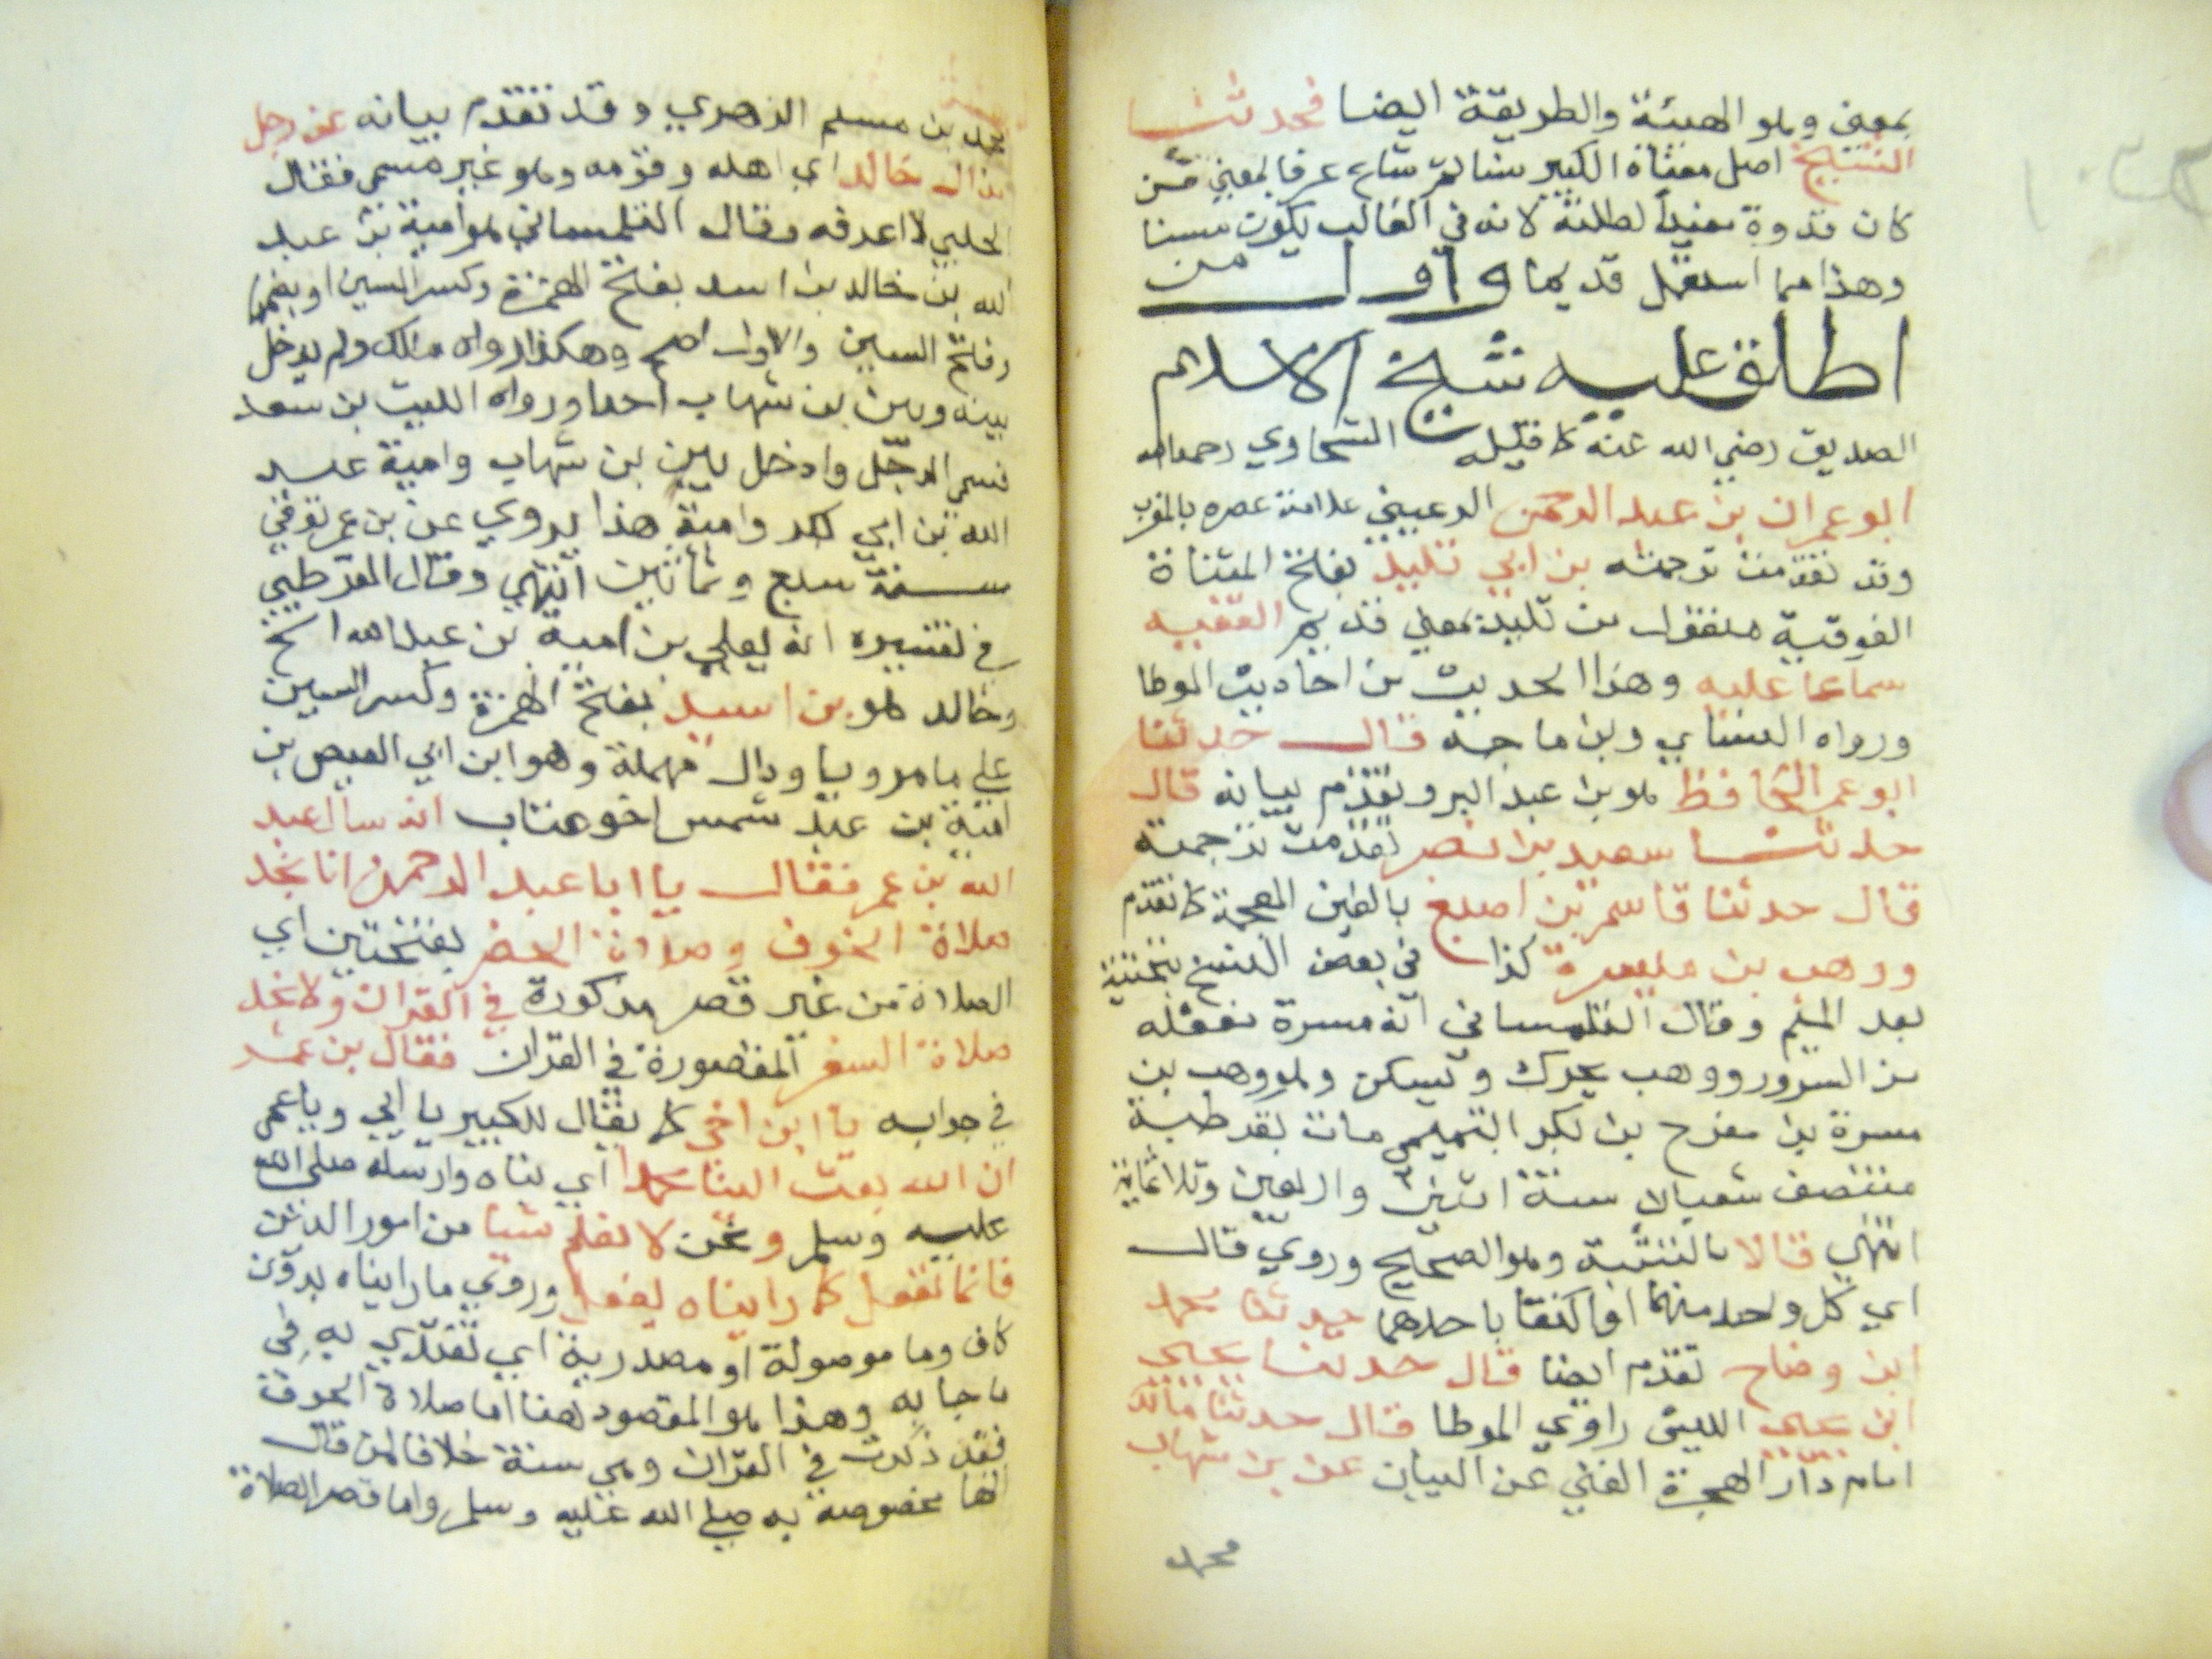 بمعنى وهو الهيئة والطريقة ايضا فحدثنا
الشيخ اصل معناه الكبير سنا ثم شاع عرفا بمعنى من
كان قدوة مفيدا لطلبته لانه في الغالب يكون مسنا
وهذا مما استعمل قديما واول من
اطلق عليه شيخ الاسلام
الصديق رضي الله عنه كما قيله السخاوي رحمه الله
ابو عمران بن عبد الرحمن الرعيني علامة عصره بالمغرب
وقد تقدمت ترجمته بن ابي تليد بفتح المثناة
الفوقية منقول من تليد بمعنى قديم الفقيه
سماعا عليه وهذا الحديث من احاديث الموطا
ورواه النساي وبن ماجه قال حدثنا
ابو عمر الحافظ هو بن عبد البر وتقدم بيانه قال
حدثنا سعيد بن نصر تقدمت ترجمته
قال حدثنا قاسم بن اصبغ بالغين المعجمة كما تقدم
ووهب بن ميسرة كذا في بعض النسخ بتحتية
بعد الميم وقال التلمساني انه مسرة مفعلة
من السرور ووهب يحرك ويسكن وهو وهب بن
مسرة بن مفرح بن بكر التميمي مات بقرطبة
منتصف شعبان سنة اثنين واربعين وثلاثماية
انتهى قالا بالتثنية وهو الصحيح وروي قال
اي كل واحد منهما او اكتفا باحدهما حدثنا محمد
ابن وضاح تقدم ايضا قال حدثنا يحيى
ابن يحيى الليثى راوي الموطا قال حدثنا مالك
امام دار الهجرة الغني عن البيان عن بن شهاب
محمد
محمد بن مسلم الزهري وقد تقدم بيانه عن رجل
من ال خالد اي اهله وقومه وهو غير مسمى فقال
الحلبي لا اعرفه وقال التلمساني هو امية بن عبد
الله بن خالد بن اسد بفتح الهمزة وكسر السين او بضمها
وفتح السين والاول اصح وهكذا رواه مالك ولم يدخل
بينه وبين بن شهاب احدا ورواه الليث بن سعد
فسمى الرجل وادخل بين بن شهاب وامية عبد
الله بن ابي بكر وامية هذا يروي عن بن عمر توفي
سنة سبع وثمانين انتهى وقال القرطبي
في تفسيره انه يعلى بن امية بن عبد الله الخ
وخالد هو بن اسيد بفتح الهمزة وكسر السين
على ما مر ويا ودال مهملة وهو ابن ابي العيص بن
امية بن عبد شمس اخو عتاب انه سال عبد
الله بن عمر فقال يا ابا عبد الرحمن انا نجد
صلاة الخوف وصلاة الحضر بفتحتين اي
الصلاة من غير قصر مذكورة في القران ولا نجد
صلاة السفر المقصورة في القران فقال بن عمر
في جوابه يا ابن اخي كما يقال للكبير يا ابي ويا عمى
ان الله بعث الينا محمدا اي نباه وارسله صلى الله
عليه وسلم ونحن لا نعلم شيا من امور الدين
فانما نفعل كما رايناه يفعل وروي ما رايناه بدون
كاف وما موصولة او مصدرية اي نقتدي به في
ما جا به وهذا هو المقصود هنا اما صلاة الخوف
فقد ذكرت في القران وهي سنة خلافا لمن قال
انها مخصوصة به صلى الله عليه وسلم واما قصر الصلاة